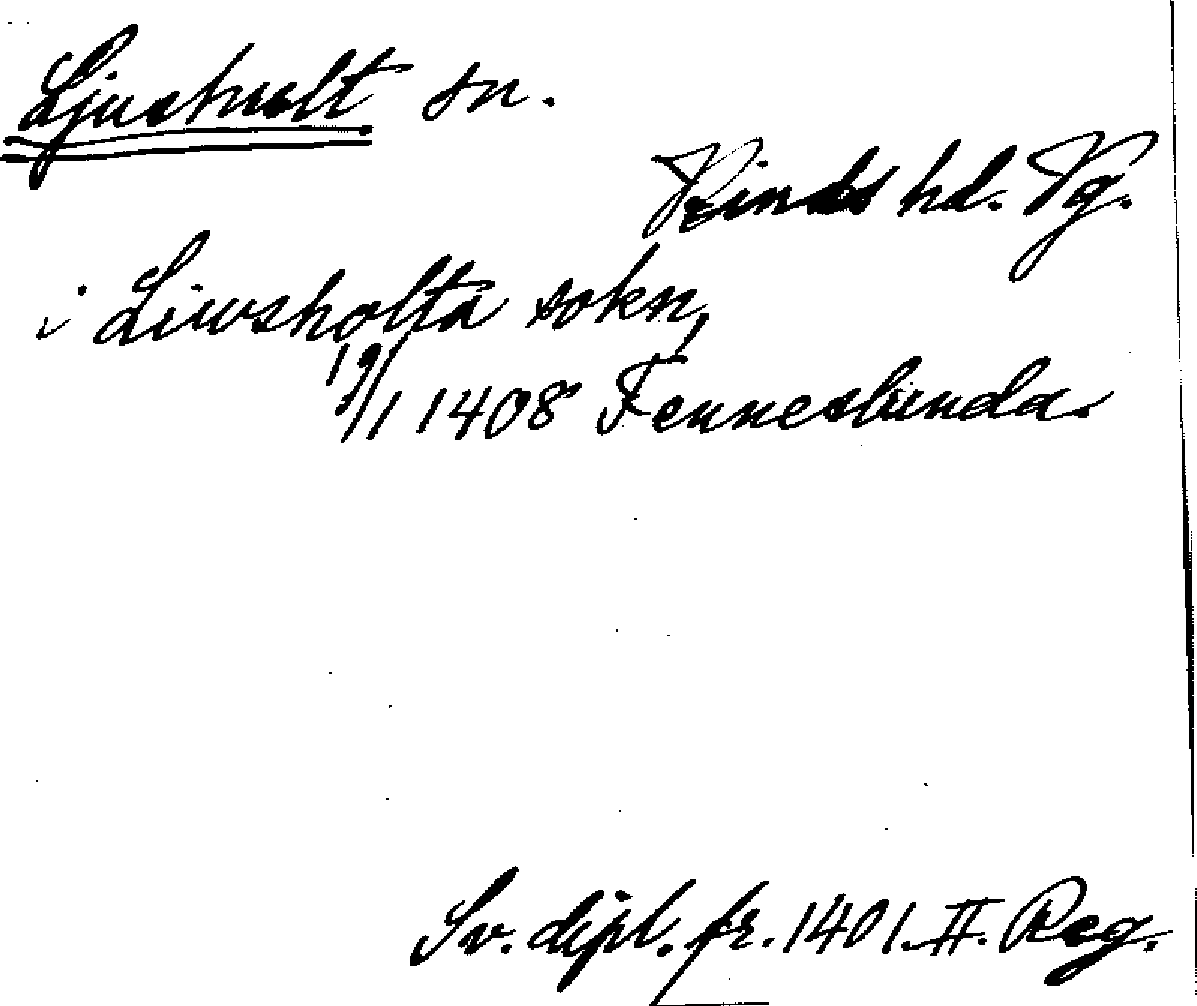 Ljushult sn.
Kinds hd. Vg.
i Liwsholta sokn,
19/1 1408 Fenneslunda.
Sv. dipl. fr. 1401. II. Reg.